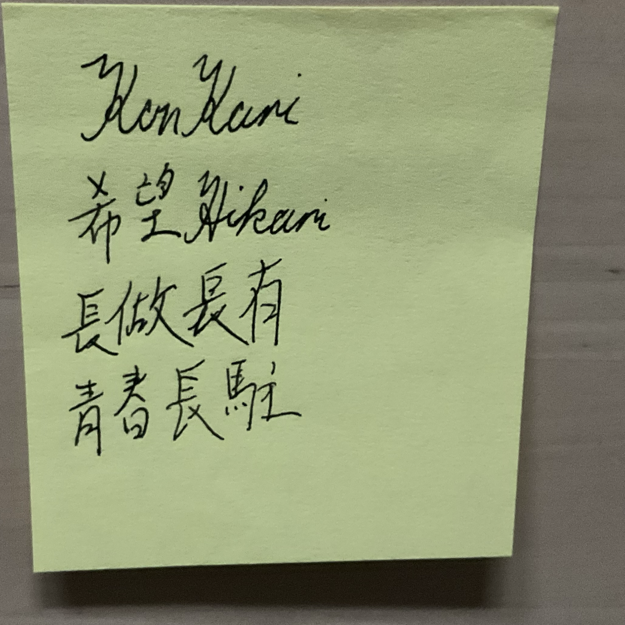 KonKari
希望Hikari
長做長有
青春長駐